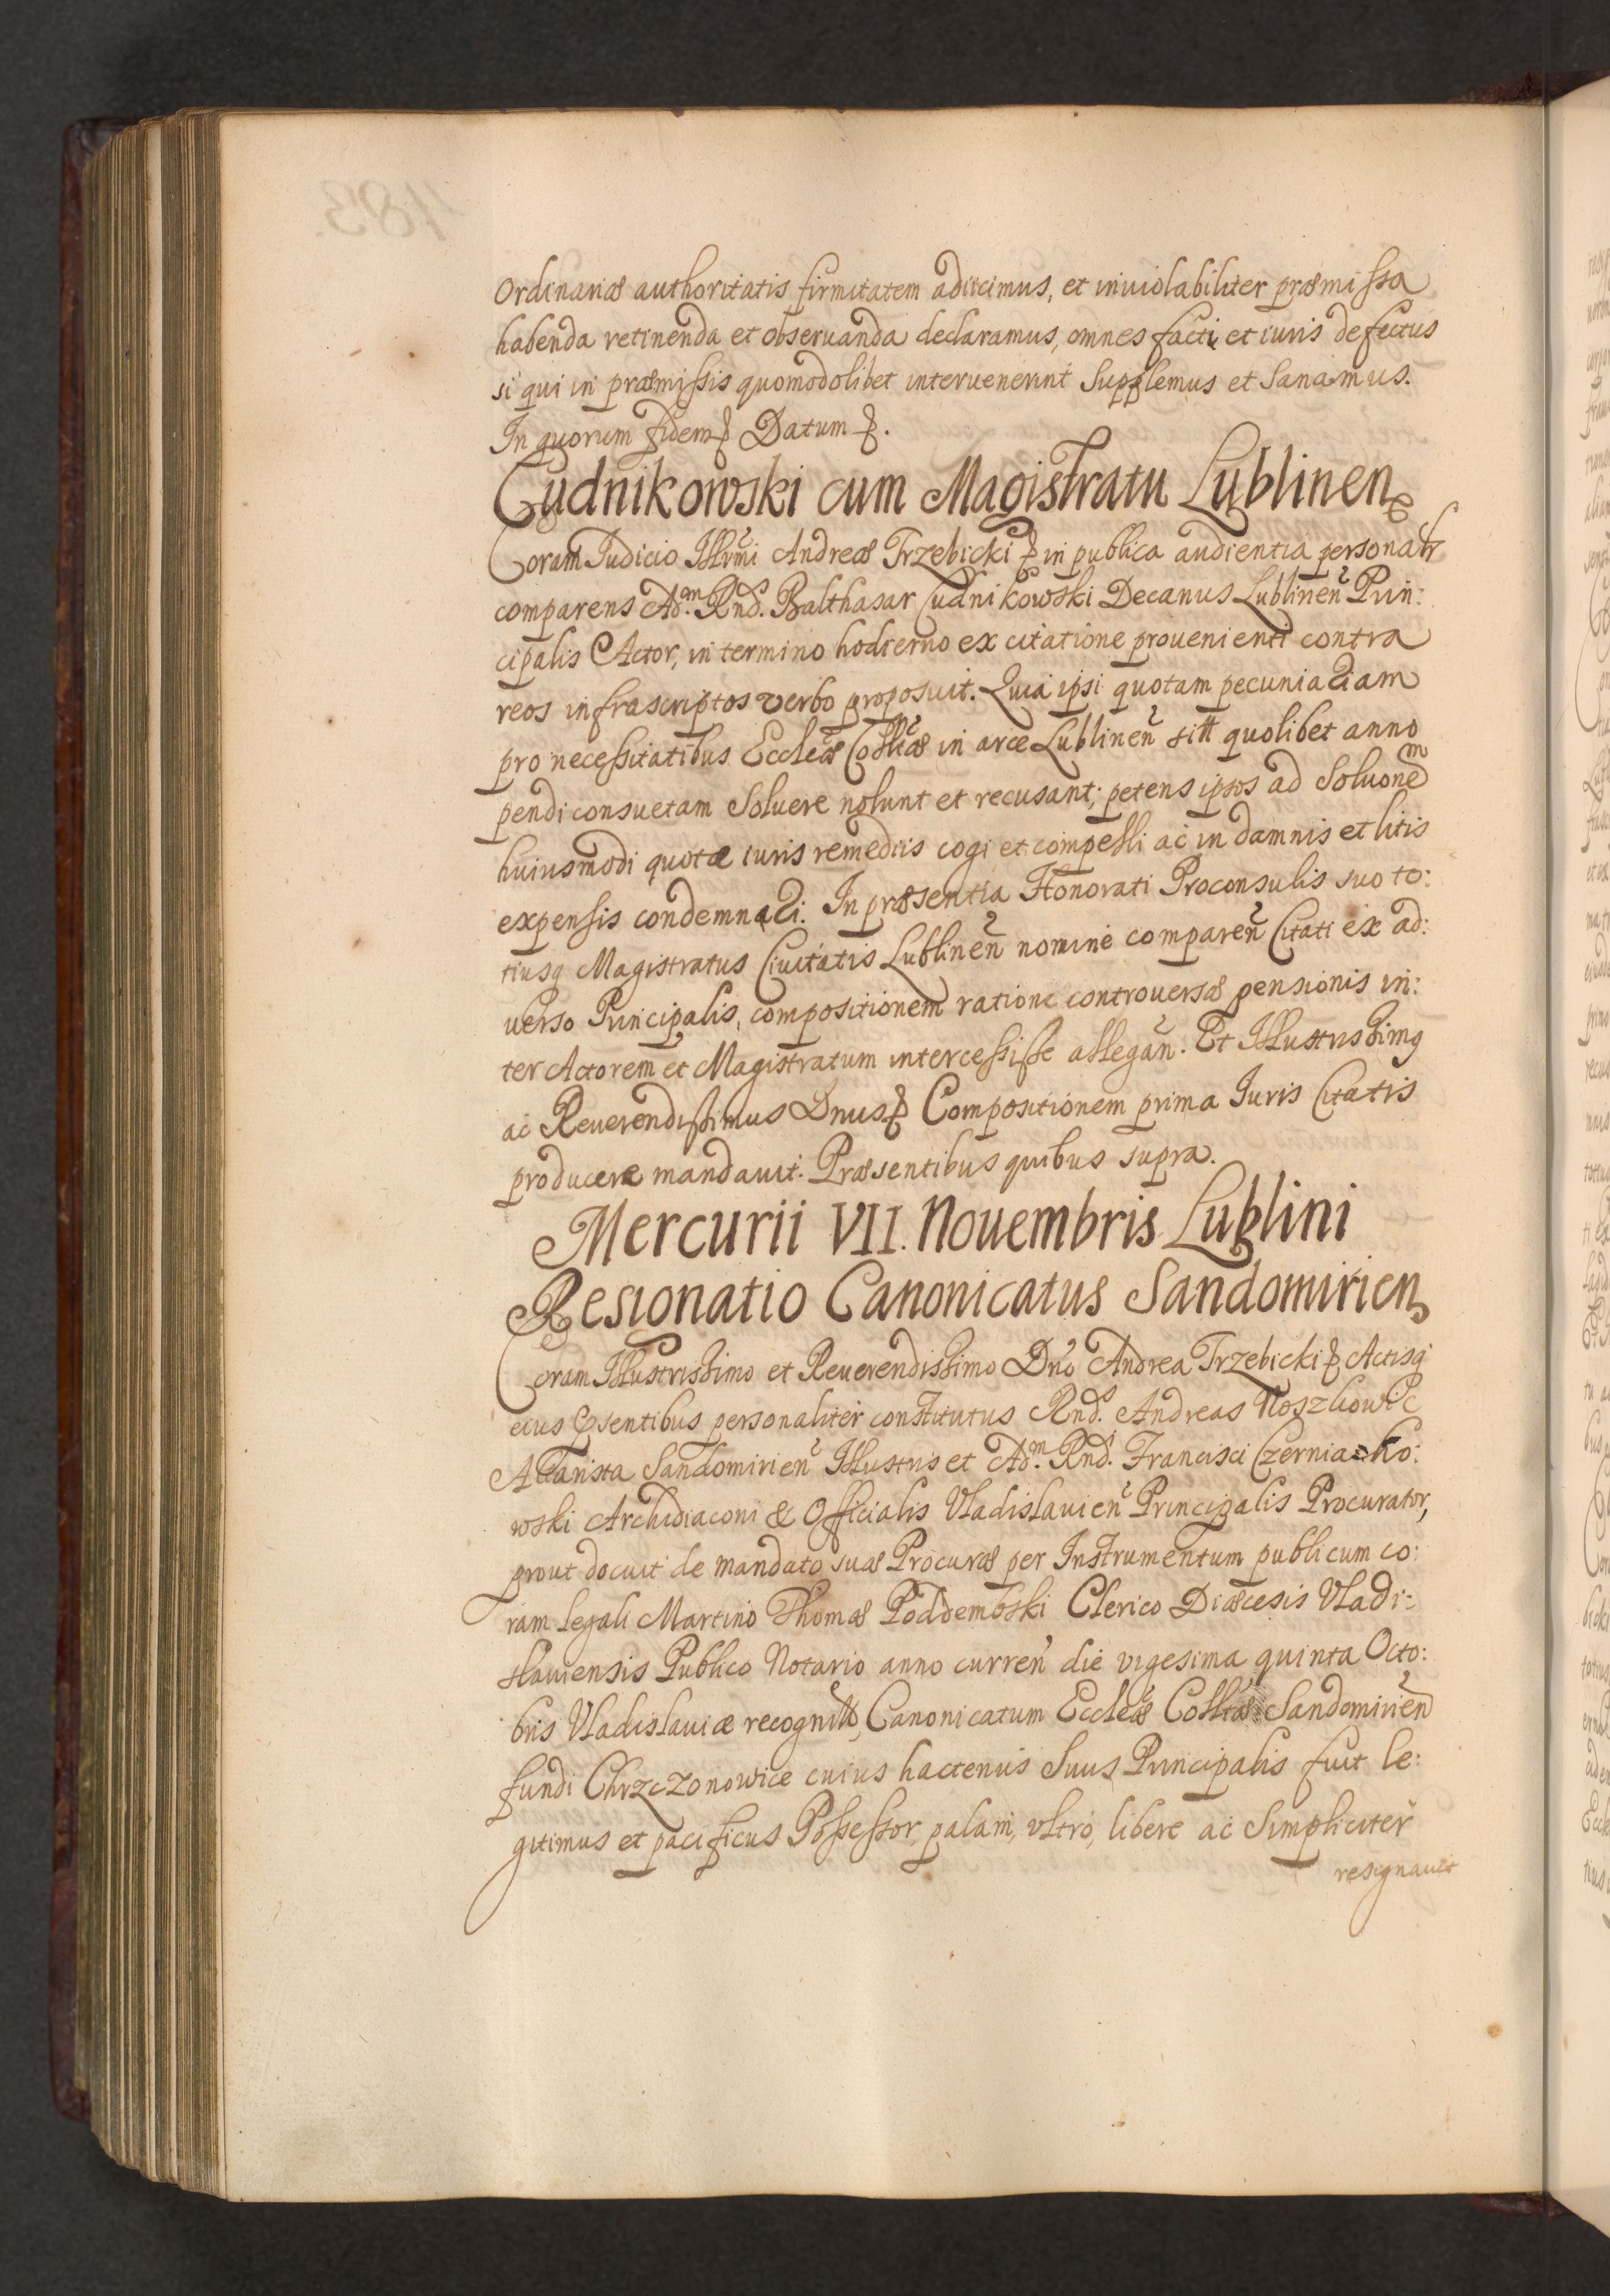 Ordinariæ authoritatis firmitatem adiicimus, et inuiolabiliter præmissa
habenda retinenda et obseruanda declaramus, omnes facti et iuris defectus
si qui in præmissis quomodolibet interuenerint Supplemus et Sanamus.
In quorum fidem Datum
Cudnikowski cum Magistratu Lublinen
Coram Iudicio Illrmi Andreæ Trzebicki in publica audientia personalr
comparens Adm. Rnds. Balthasar Cudnikowski Decanus Lublinen Prin:
cipalis Actor, in termino hodierno ex citatione prouenienti contra
reos infrascriptos verbo proposuit. Quia ipsi quotam pecuniariam
pro necessitatibus Eccleæ Colltæ in arce Lublinen sitt quolibet anno
pendi consuetam Soluere nolunt et recusant; petens ipsos ad Soluonem
huiusmodi quotæ iuris remediis cogi et compelli ac in damnis et litis
expensis condemnari. In præsentia Honorati Proconsulis suo to:
tiusq Magistratus Ciuitatis Lublinen nomine comparen Citati ex ad:
uerso Principalis, compositionem ratione controuersæ pensionis in:
ter Actorem et Magistratum intercessisse allegan. Et Illustrissimq
ac Reuerendissimus Dnus Compositionem prima Iuris Citatis
producere mandauit. Præsentibus quibus supra.
Mercurii VII. Nouembris Lublini
Resignatio Canonicatus Sandomirien
Coram Illustrissimo et Reuerendissimo Dno Andrea Trzebicki Actisq
eius Præsentibus personaliter constitutus Rnds. Andreas Noszkowic
Altarista Sandomirien Illustris et Adm. Rndi. Francisci Czerniako:
wski Archidiaconi & Officialis Vladislauien Principalis Procurator,
prout docuit de mandato suæ Procuræ per Instrumentum publicum co:
ram legali Martino Thoma Poddembski Clerico Diæcesis Vladi:
slauiensis Publico Notario anno curren die vigesima quinta Octo:
bris Vladislauiæ recognitt, Canonicatum Eccleæ Colltæ Sandomirien
fundi Chrzczonowice cuius hactenus Suus Principalis fuit le:
gitimus et pacificus Possessor, palam, vltro, libere ac Simpliciter
resignauit